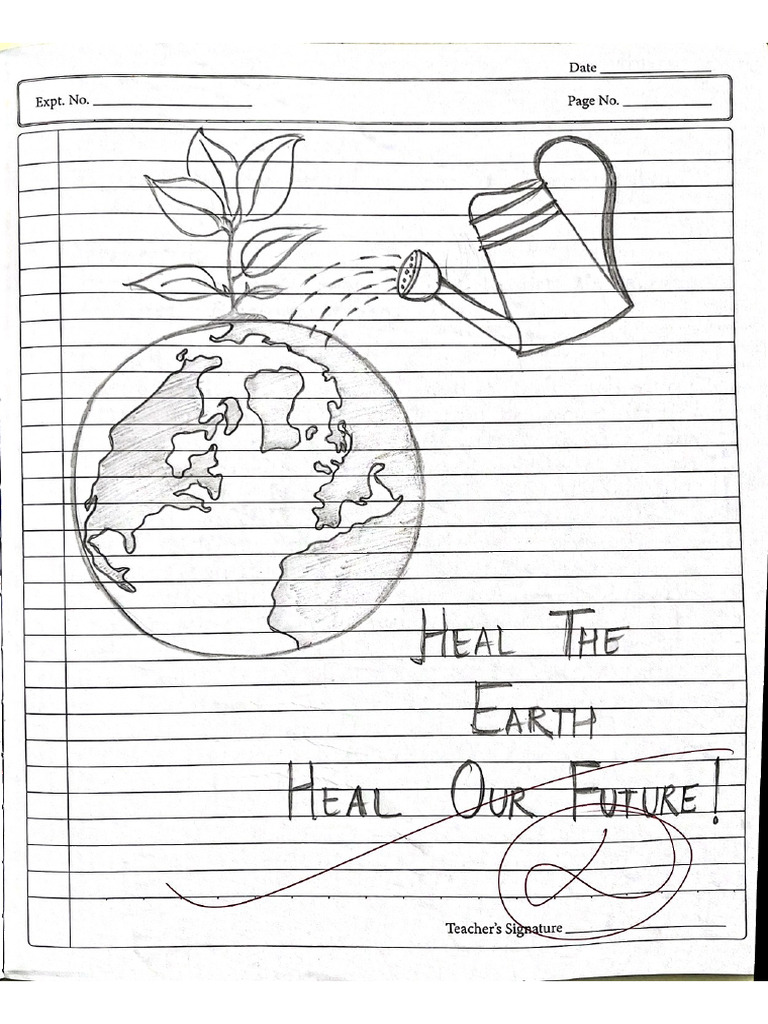 Date
Expt. No.
Page No.
HEAL THE
EARTH
HEAL OUR FUTURE!
Teacher's Signature